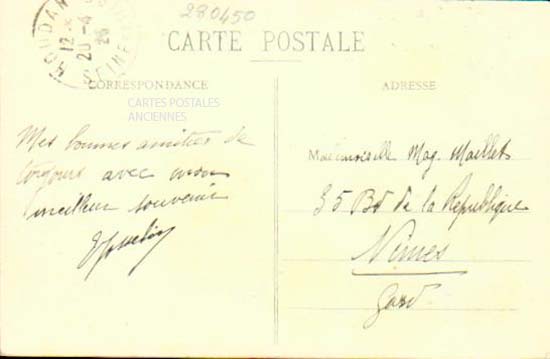 280450
HOUDAN
12 *
20 - 4
26
SEINE
CARTE POSTALE
CORRESPONDANCE
ADRESSE
CARTES POSTALES
ANCIENNES
Mes bonnes amitiés de
toujours avec mon
meilleur souvenir
Mademoiselle Mag. Maillet
35 Bd de la République
Nimes
Gard